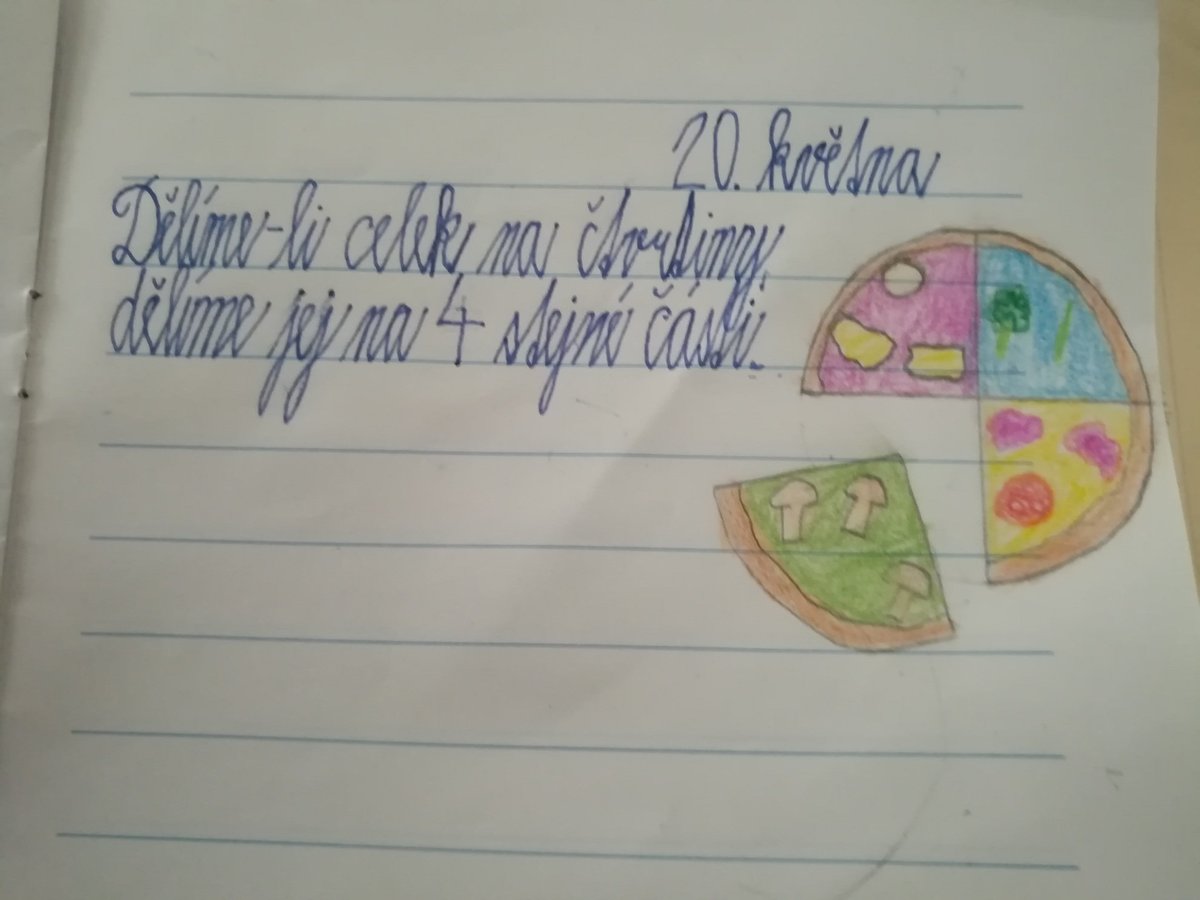 20. května
Dělíme-li celek na čtvrtiny,
dělíme jej na 4 stejné části.